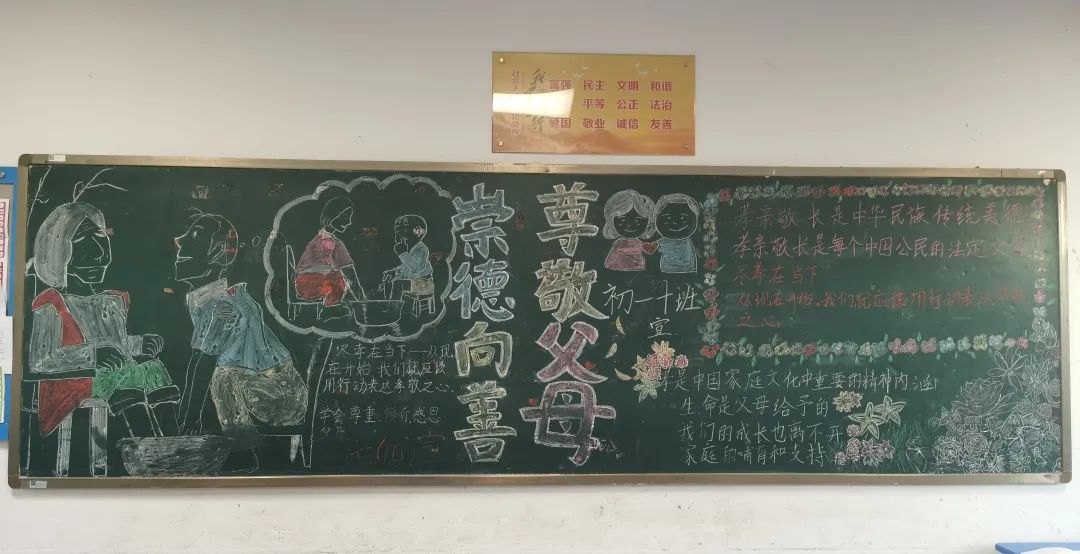 富强 民主 文明 和谐
平等 公正 法治
爱国 敬业 诚信 友善
崇德向善
尊敬父母
初一十班
宣
尽孝在当下——从现
在开始 我们就应该
用行动表达孝敬之心。
学会尊重、倾听、感恩
父母
孝亲敬长是中华民族传统美德
孝亲敬长是每个中国公民的法定义务
尽孝在当下
从现在开始,我们就应该用行动表达孝敬
之心
孝是中国家庭文化中重要的精神内涵
生命是父母给予的
我们的成长也离不开
家庭的哺育和支持